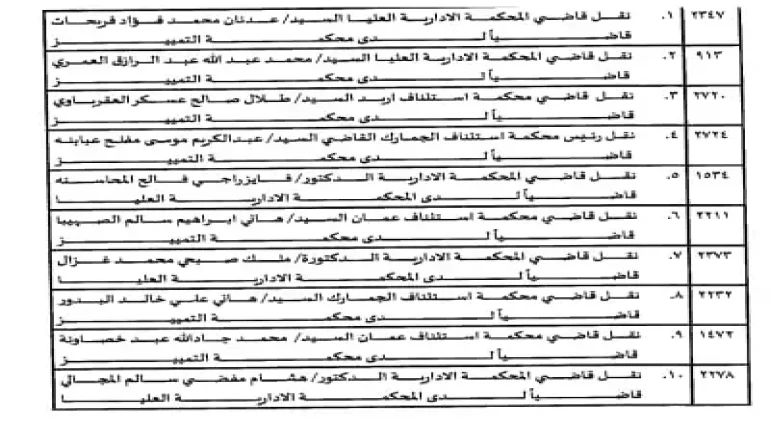 ٢٣٤٧ ١. نقل قاضي المحكمة الادارية العليا السيد/ عدنان محمد فؤاد فريحات
قاضياً لدى محكمة التمييز
٩١٣ ٢. نقل قاضي المحكمة الادارية العليا السيد/ محمد عبد الله عبد الرازق العمري
قاضياً لدى محكمة التمييز
٢٧٢٠ ٣. نقل قاضي محكمة استئناف اربد السيد/ طلال صالح عسكر العقرباوي
قاضياً لدى محكمة التمييز
٢٧٢٤ ٤. نقل رئيس محكمة استئناف الجمارك القاضي السيد/ عبدالكريم موسى مفلح عبابنه
قاضياً لدى محكمة التمييز
١٥٣٤ ٥. نقل قاضي المحكمة الادارية الدكتور/ فايز راجي فالح المحاسنه
قاضياً لدى المحكمة الادارية العليا
٢٢١١ ٦. نقل قاضي محكمة استئناف عمان السيد/ هاني ابراهيم سالم الصهيبا
قاضياً لدى محكمة التمييز
٢٣٧٣ ٧. نقل قاضي المحكمة الادارية الدكتورة/ ملك صبحي محمد غزال
قاضياً لدى المحكمة الادارية العليا
٢٢٣٢ ٨. نقل قاضي محكمة استئناف الجمارك السيد/ هاني علي خالد البدور
قاضياً لدى محكمة التمييز
١٤٧٢ ٩. نقل قاضي محكمة استئناف عمان السيد/ محمد جادالله عبد خصاونة
قاضياً لدى محكمة التمييز
٢٢٧٨ ١٠. نقل قاضي المحكمة الادارية الدكتور/ هشام مفضي سالم المجالي
قاضياً لدى المحكمة الادارية العليا